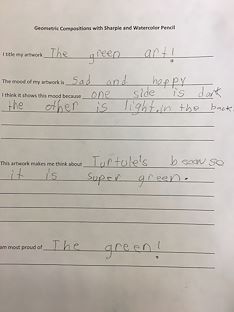 Geometric Compositions with Sharpie and Watercolor Pencil
I title my artwork The green art!
The mood of my artwork is Sad and happy
I think it shows this mood because one side is dark
the other is light, in the back
This artwork makes me think about Turtule's
it is super green.
am most proud of The green!